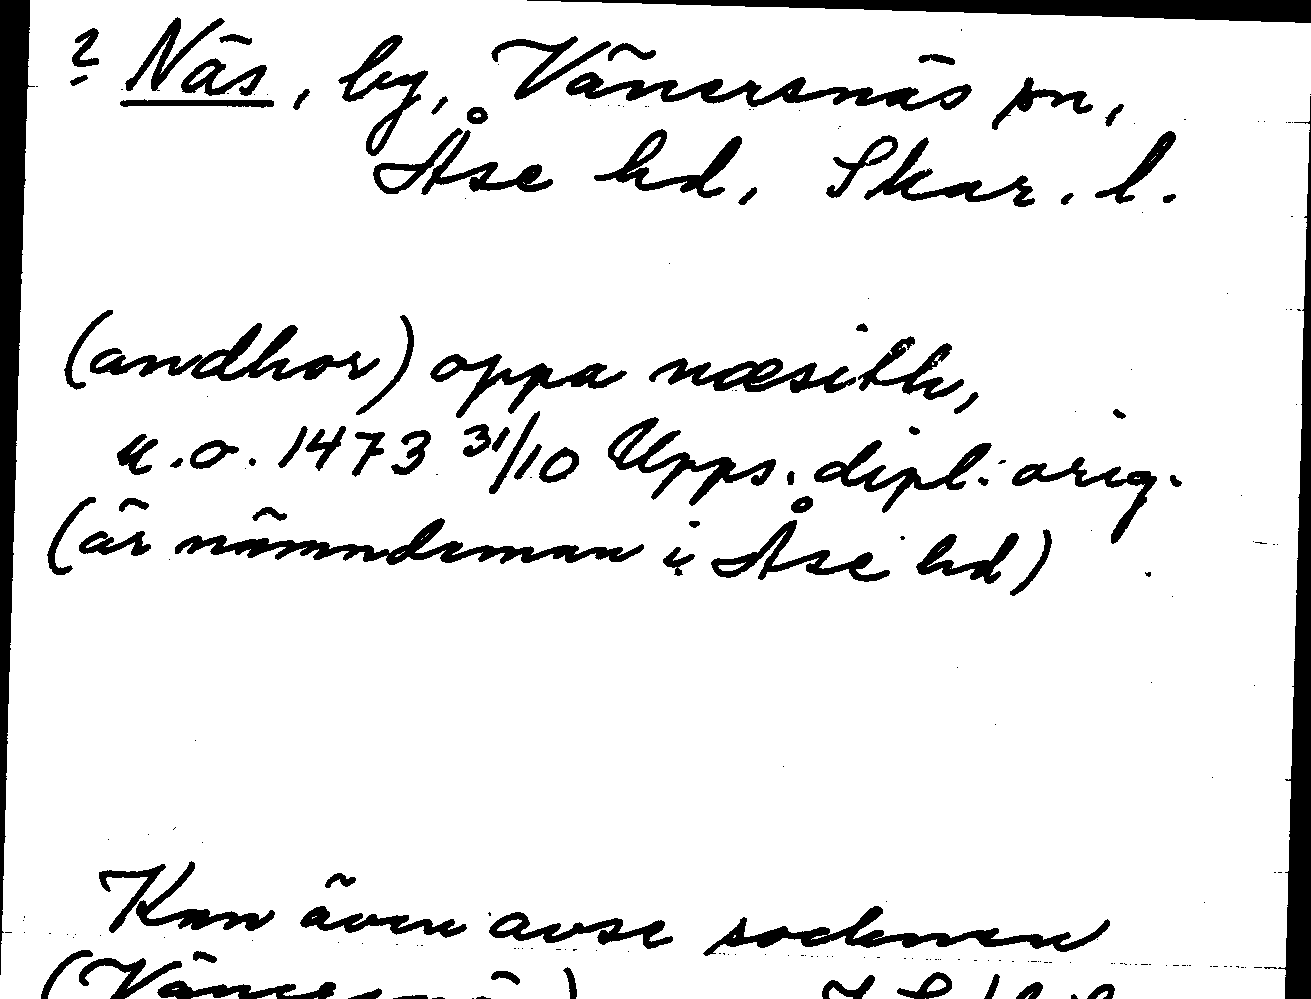 ? Näs, by, Vänersnäs sn,
Åse hd, Skar. l.
(andhor) oppa næsith,
u.o. 1473 31/10 Upps. dipl. orig.
(är nämndeman i Åse hd)
Kan även avse socknen
(Vänersnäs)